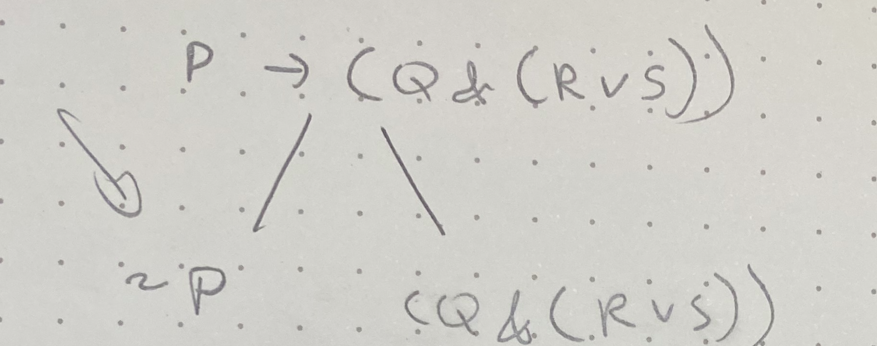 P → (Q & (R ∨ S))
~P (Q & (R ∨ S))